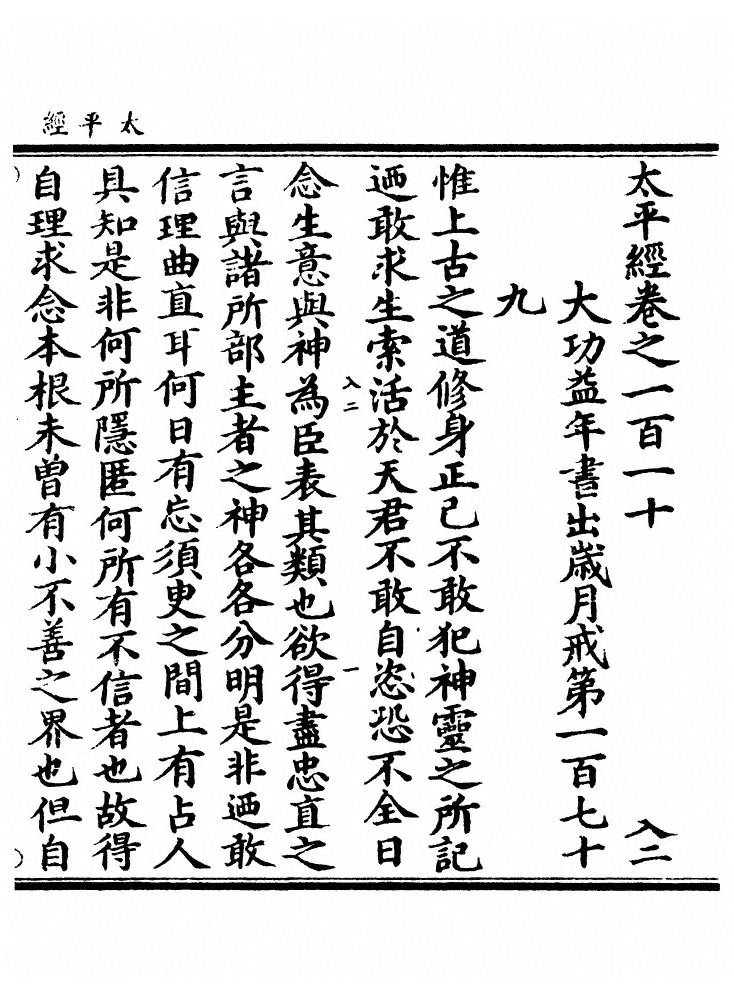 太平經
太平經卷之一百一十 入二
大功益年書出歲月戒第一百七十
九
惟上古之道修身正己不敢犯神靈之所記
迺敢求生索活於天君不敢自恣恐不全日
入二 一
念生意與神為臣表其類也欲得盡忠直之
言與諸所部主者之神各各分明是非迺敢
信理曲直耳何日有忘須臾之間上有占人
具知是非何所隱匿何所有不信者也故得
自理求念本根未曾有小不善之界也但自